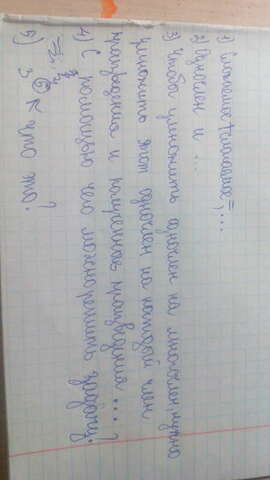 1) слагаемое+слагаемое=...
2) Одночлен и ...
3) Чтобы умножить одночлен на многочлен, нужно
умножить этот одночлен на каждый член
и полученные произведения ...
4) С помощью чего можно решить задачу?
5) 3 ← что это?